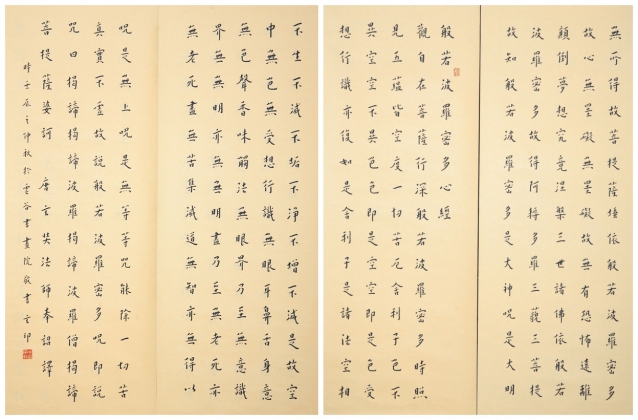 般若波羅密多心經
觀自在菩薩行深般若波羅密多時照
見五蘊皆空度一切苦厄舍利子色不
異空空不異色色即是空空即是色受
想行識亦復如是舍利子是諸法空相
不生不滅不垢不淨不增不減是故空
中無色無受想行識無眼耳鼻舌身意
無色聲香味觸法無眼界乃至無意識
界無無明亦無無明盡乃至無老死亦
無老死盡無苦集滅道無智亦無得以
無所得故菩提薩埵依般若波羅密多
故心無罣礙無罣礙故無有恐怖遠離
顛倒夢想究竟涅槃三世諸佛依般若
波羅密多故得阿耨多羅三藐三菩提
故知般若波羅密多是大神咒是大明
咒是無上咒是無等等咒能除一切苦
真實不虛故說般若波羅密多咒即說
咒曰揭諦揭諦波羅揭諦波羅僧揭諦
菩提薩婆訶 唐玄奘法師奉詔譯
時壬辰之仲秋於雲谷書畫院敬書